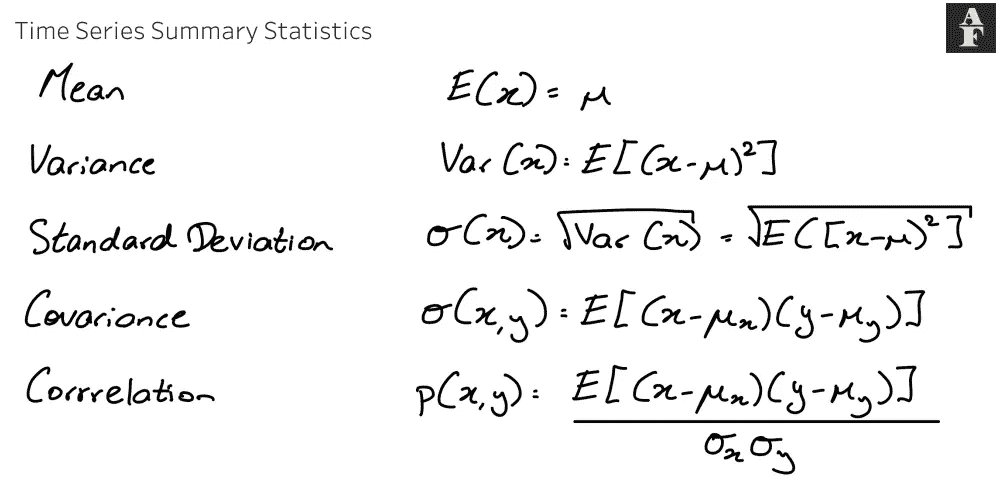 Time Series Summary Statistics
AF
Mean E(x) = μ
Variance Var(x) = E[(x-μ)²]
Standard Deviation σ(x) = √Var(x) = √E([x-μ)²]
Covariance σ(x,y) = E[(x-μx)(y-μy)]
Corrrelation p(x,y) = E[(x-μx)(y-μy)]
σx σy